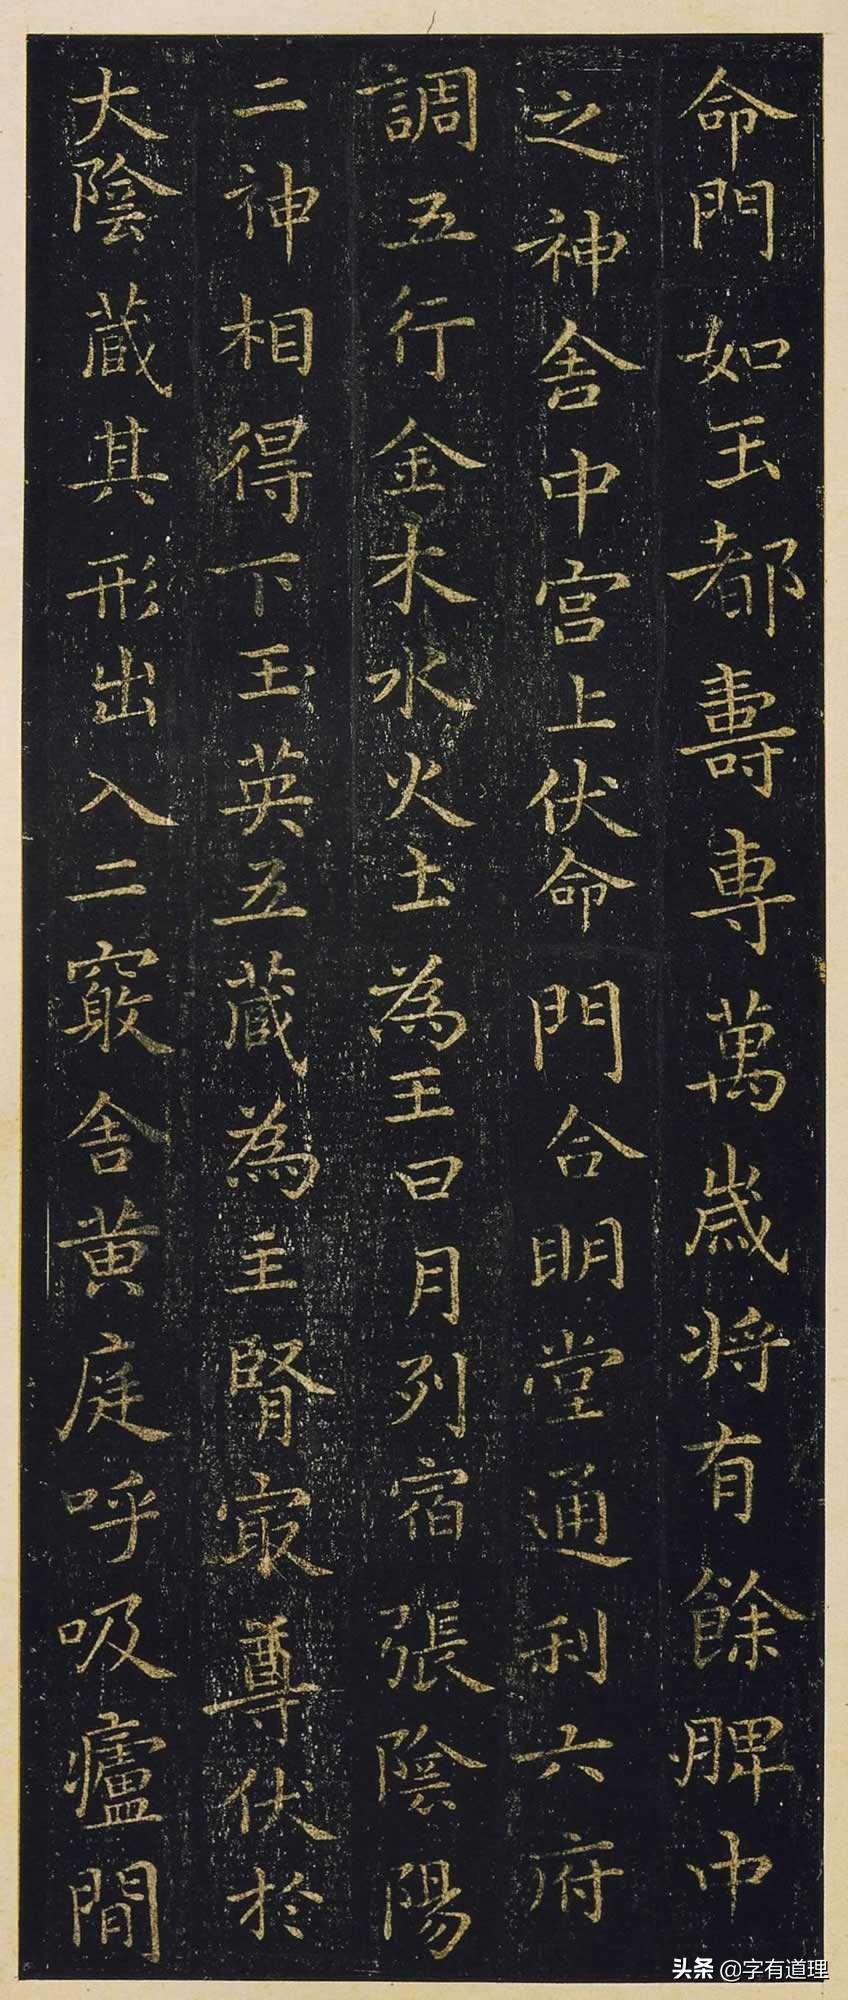 命門如玉都壽專萬歲将有餘脾中
之神舍中宫上伏命門合明堂通利六府
調五行金木水火土為王日月列宿張陰陽
二神相得下玉英五蔵為主腎寂尊伏於
大陰蔵其形出入二竅舍黄庭呼吸廬間
头条@字有道理